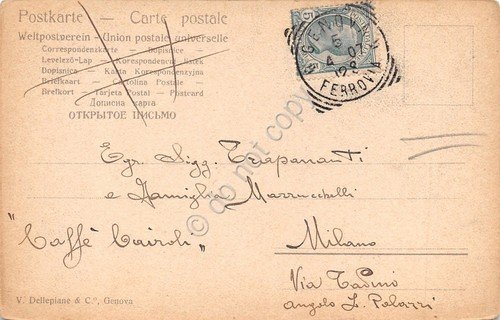 Postkarte — Carte postale
Weltpostverein - Union postale universelle
Correspondenzkarte — Dopisnice
Levelező-Lap — Korespondencni listek
Dopisnica — Karta Korespondencyjna
Briefkaart — Cartolina Postale
Brefkort — Tarjeta Postal — Postcard
Дописна карта
ОТКРЫТОЕ ПИСЬМО
GENOVA
5
4 · 07
12 S
FERROVIA
5
Egr. Sigg. Trapananti
e Famiglia Marrucchelli
"Caffè Cairoli"
Milano
Via Tadino
angolo L. Palazzi
V. Dellepiane & C.º, Genova
do not copy